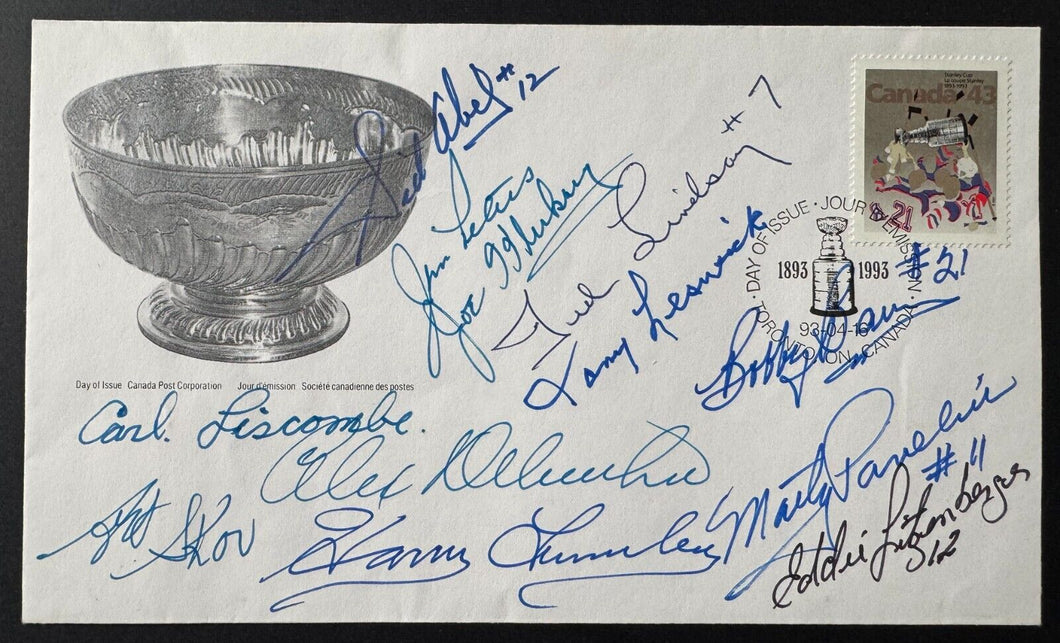 Sid Abel #12
Jim Peters
Joe
Ted Lindsay #7
Tony Leswick
Stanley Cup
La coupe Stanley
1893-1993
Canada 43
21
DAY OF ISSUE · JOUR D'ÉMISSION ·
1893 1993
93-04-16
TORONTO ON, CANADA
#21
Bobby
Day of Issue Canada Post Corporation Jour d'émission Société canadienne des postes
Carl. Liscombe.
Alex Delvecchio
Marty Pavelich
#11
Art Skov
Harry Lumley
Eddie Litzenberger
12